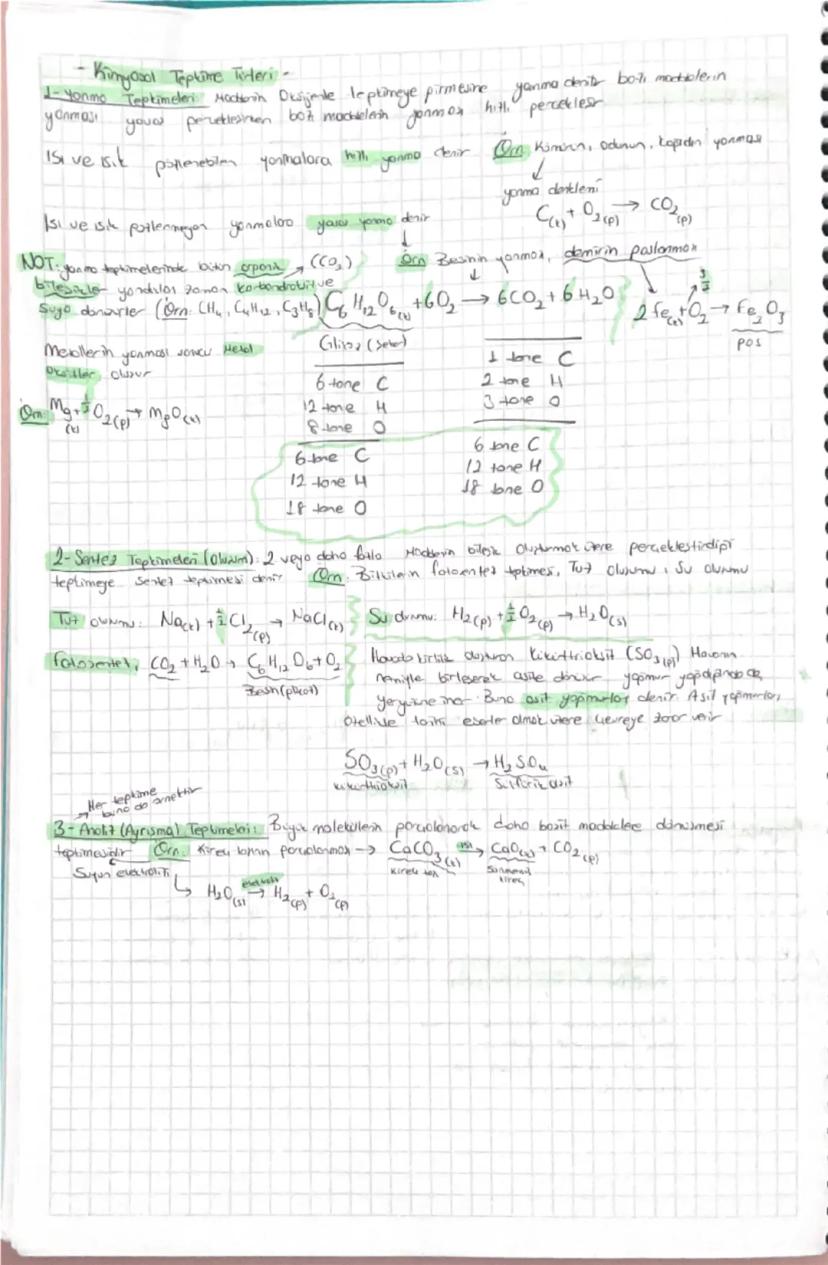 - Kimyasal Tepkime Türleri -
1- Yanma Tepkimeleri: Maddenin Oksijenle tepkimeye girmesine yanma denir bazı maddelerin
yanması yavaş gerçekleşirken bazı maddelerin yanması hızlı gerçekleşir
Isı ve ışık gözlenebilen yanmalara hızlı yanma denir Örn: Kömürün, odunun, kağıdın yanması
yanma denklemi
C(k) + O2(g) → CO2(g)
Isı ve ışık gözlenmeyen yanmalara yavaş yanma denir
NOT: yanma tepkimelerinde bütün organik → (CO2) Örn: Besinin yanması, demirin paslanması
bileşikler yandıkları zaman karbondioksit ve
suya dönüşürler (Örn: CH4, C4H12, C3H8) C6H12O6(k) + 6O2 → 6CO2 + 6H2O
2Fe(k) + 3/2 O2 → Fe2O3
pas
Metallerin yanması sonucu Metal Glikoz (Şeker)
oksitler oluşur
Örn: Mg(k) + 1/2 O2(g) → MgO(k)
6 tane C
12 tane H
8 tane O
6 tane C
12 tane H
18 tane O
1 tane C
2 tane H
3 tane O
6 tane C
12 tane H
18 tane O
2- Sentez Tepkimeleri (Oluşum): 2 veya daha fazla Maddenin bileşik oluşturmak üzere gerçekleştirdiği
tepkimeye sentez tepkimesi denir Örn: Bitkilerin fotosentez tepkimesi, Tuz oluşumu, Su oluşumu
Tuz oluşumu: Na(k) + 1/2 Cl2(g) → NaCl(k) Su oluşumu: H2(g) + 1/2 O2(g) → H2O(s)
fotosentez, CO2 + H2O → C6H12O6 + O2
Besin
Havada birlikte oluşturan Kükürttrioksit (SO3(g)) Havanın
nemiyle birleşerek aside dönüşür yağmur yağdığında da,
yeryüzüne iner. Buna asit yağmurları denir. Asit yağmurları,
Özellikle tarihi eserler olmak üzere çevreye zarar verir
SO3(g) + H2O(s) → H2SO4
kükürttrioksit Sülfürik asit
Her tepkime buna da örnektir
3- Analiz (Ayrışma) Tepkimeleri: Büyük moleküllerin parçalanarak daha basit maddelere dönüşmesi
tepkimesidir Örn: Kireç taşının parçalanması → CaCO3(k) ısı→ CaO(k) + CO2(g)
Suyun elektrolizi kireç taşı Sönmemiş kireç
H2O(s) elektroliz→ H2(g) + O2(g)